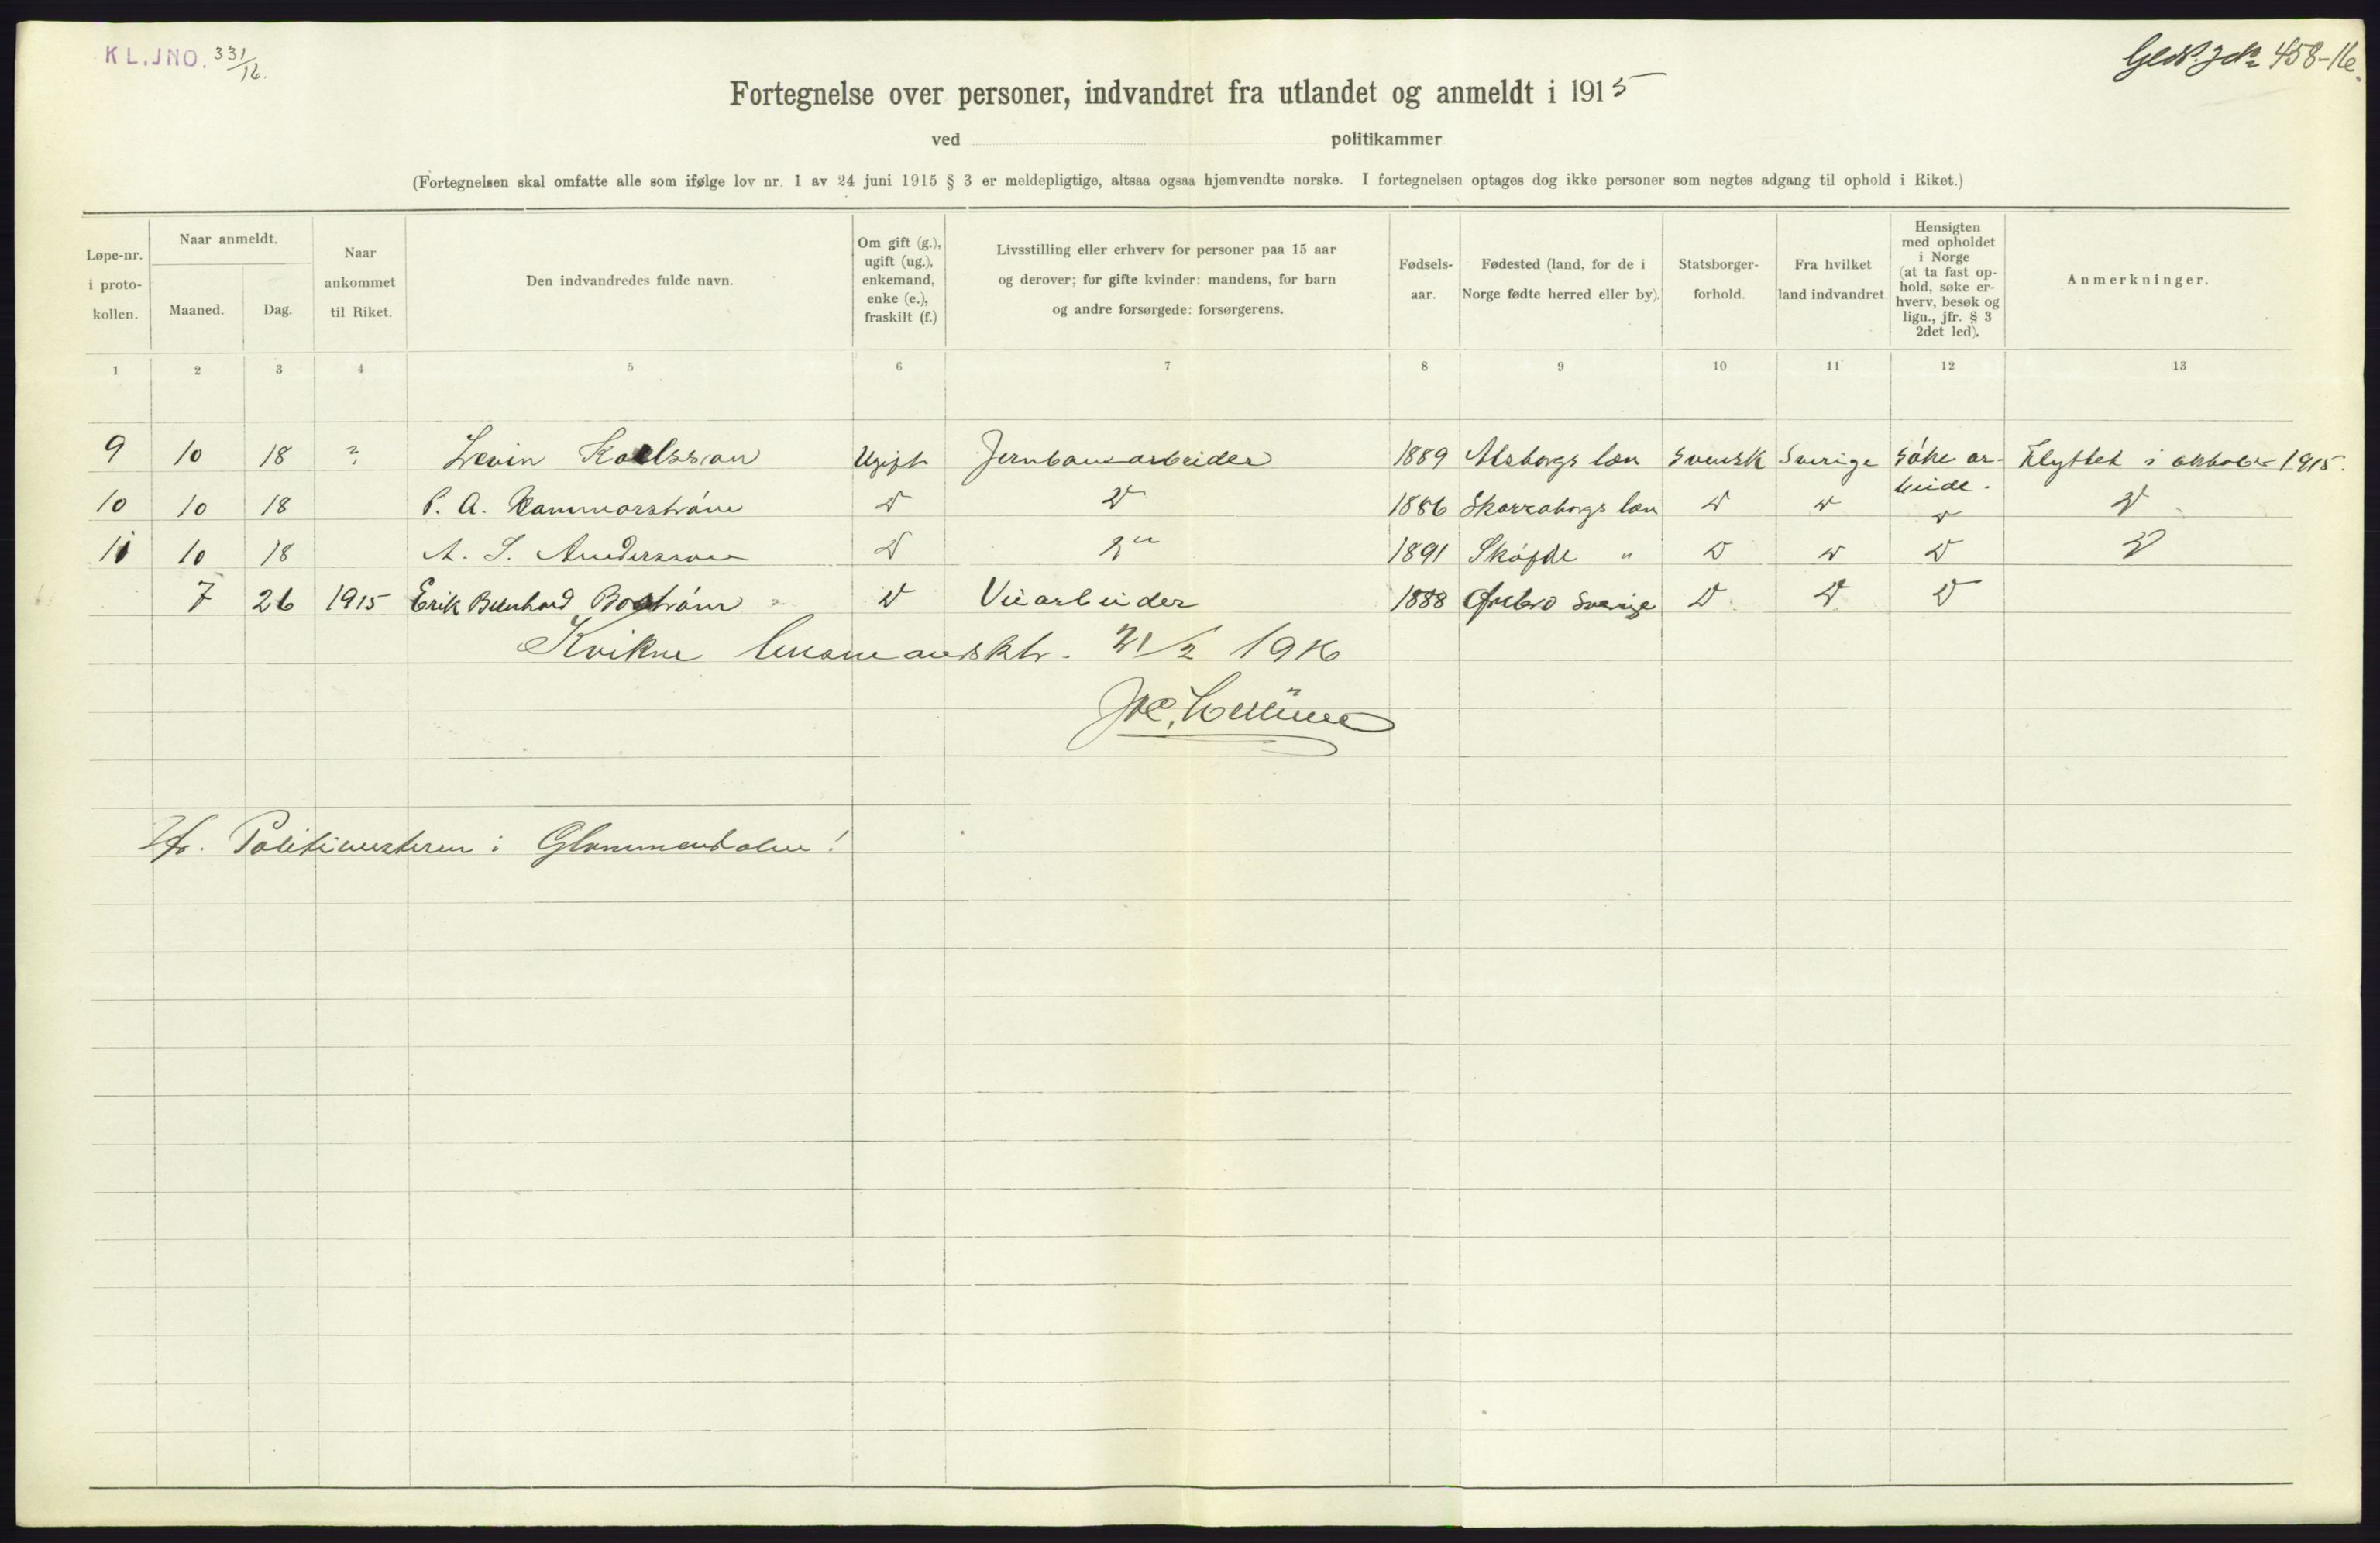 KL.JNO. 331/16.
458-16.
Fortegnelse over personer, indvandret fra utlandet og anmeldt i 1915
ved politikammer
(Fortegnelsen skal omfatte alle som ifølge lov nr. 1 av 24 juni 1915 § 3 er meldepligtige, altsaa ogsaa hjemvendte norske. I fortegnelsen optages dog ikke personer som negtes adgang til ophold i Riket.)
Løpe-nr. i proto- kollen.
Naar anmeldt.
Maaned. Dag.
Naar ankommet til Riket.
Den indvandredes fulde navn.
Om gift (g.), ugift (ug.), enkemand, enke (e.), fraskilt (f.)
Livsstilling eller erhverv for personer paa 15 aar
og derover; for gifte kvinder: mandens, for barn
og andre forsørgede: forsørgerens.
Fødsels- aar.
Fødested (land, for de i Norge fødte herred eller by).
Statsborger- forhold.
Fra hvilket land indvandret.
Hensigten med opholdet i Norge (at ta fast op- hold, søke er- hverv, besøk og lign., jfr. § 3 2det led).
Anmerkninger.
1 2 3 4 5 6 7 8 9 10 11 12 13
9 10 18 ? Levin Karlsson Ugift Jernbanearbeider 1889 Alsborgs län svensk Sverige søke ar- beide. Flyttet i oktober 1915.
10 10 18 P. A. D D 1886 Skaraborgs län D D D D
11 10 18 A. S. Andersson D D" 1891 Sköfde " D D D D
7 26 1915 Erik Bernhard Boström D Veiarbeider 1888 Ørebro Sverige D D D
Kvikne lensmandsktr. 21/2 1916
Hr. Politimesteren i Glommendalen!